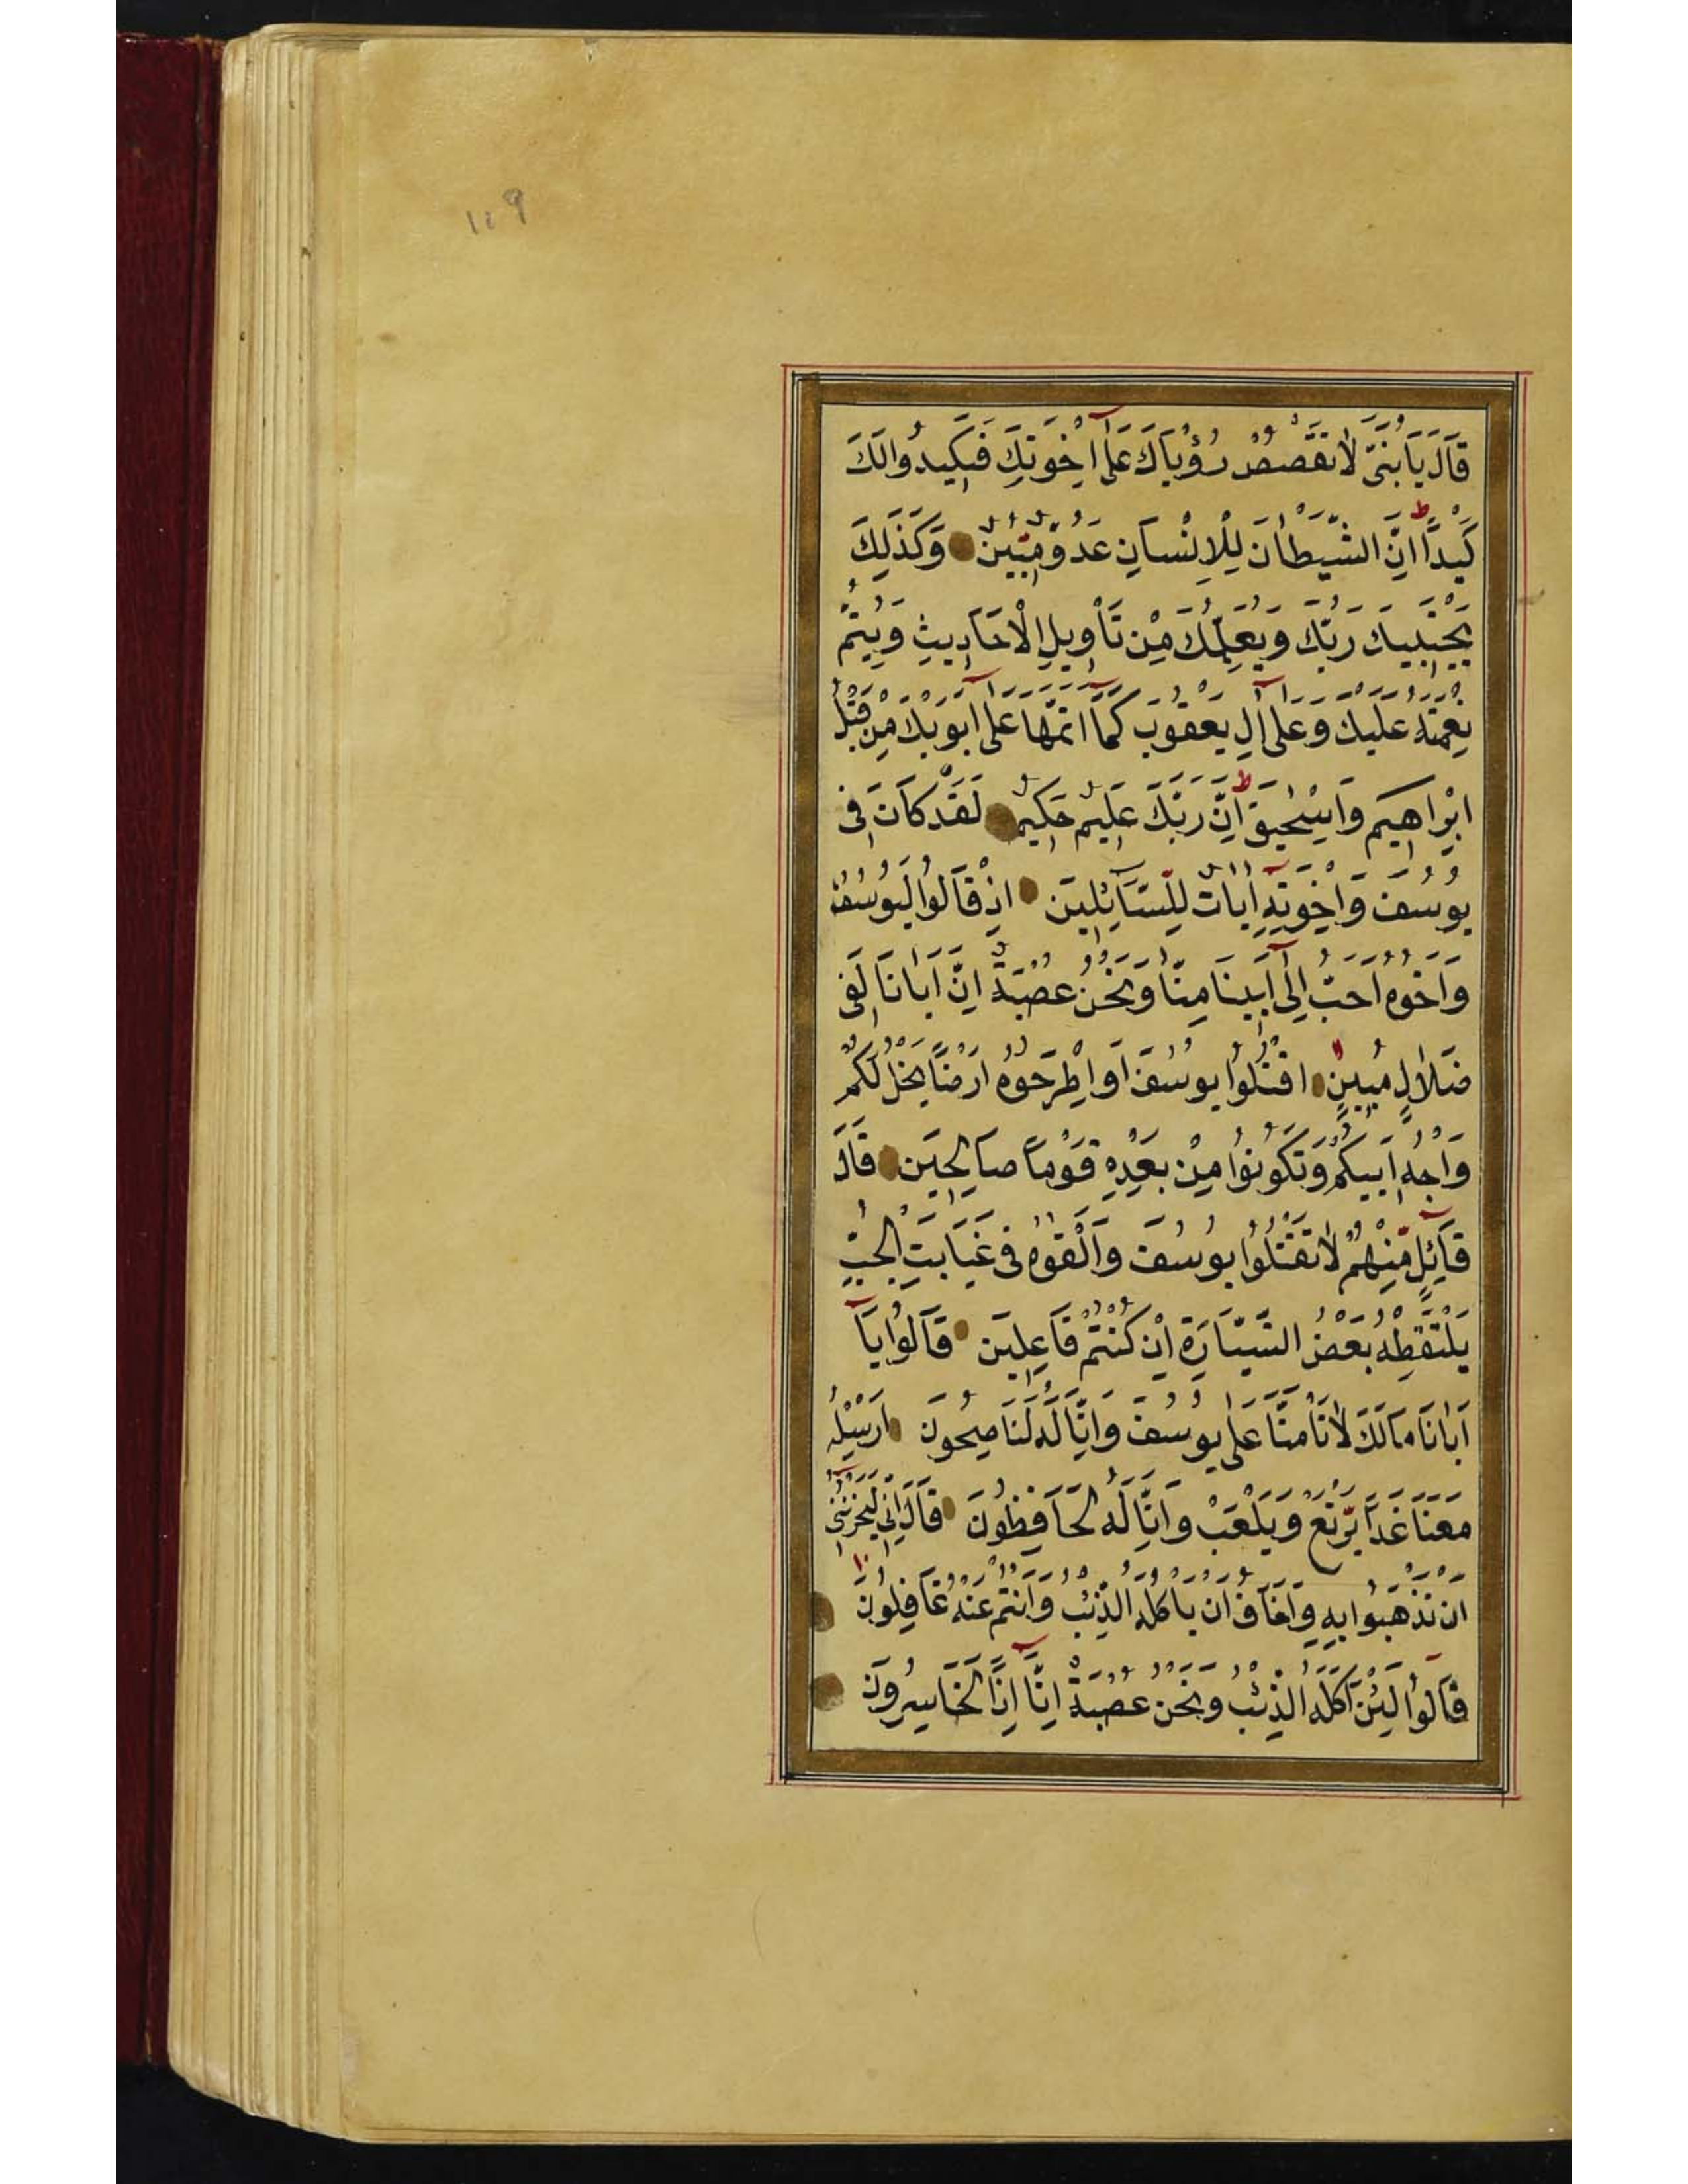 ١٠٩
قَالَ يَا بُنَىَّ لَا تَقْصُصْ رُؤْيَاكَ عَلَىٰ اِخْوَتِكَ فَيَكِيدُوا لَكَ
كَيْدًا ط اِنَّ الشَّيْطَانَ لِلْاِنْسَانِ عَدُوٌّ مُّبِينٌ وَكَذَلِكَ
يَجْتَبِيكَ رَبُّكَ وَيُعَلِّمُكَ مِنْ تَأْوِيلِ الْاَحَادِيثِ وَيُتِمُّ
نِعْمَتَهُ عَلَيْكَ وَعَلَىٰ اٰلِ يَعْقُوبَ كَمَآ اَتَمَّهَا عَلَىٰ اَبَوَيْكَ مِنْ قَبْلُ
اِبْرَاهِيمَ وَاِسْحٰيقَ ط اِنَّ رَبَّكَ عَلِيمٌ حَكِيمٌ لَقَدْ كَانَ فِى
يُوسُفَ وَاِخْوَتِهِ اٰيَاتٌ لِلسَّآئِلِينَ اِذْ قَالُوا لَيُوسُفُ
وَاَخُوهُ اَحَبُّ اِلٰىٓ اَبِينَا مِنَّا وَنَحْنُ عُصْبَةٌ اِنَّ اَبَانَا لَفِى
ضَلَالٍ مُبِينٍ اقْتُلُوا يُوسُفَ اَوِ اطْرَحُوهُ اَرْضًا يَخْلُ لَكُمْ
وَجْهُ اَبِيكُمْ وَتَكُونُوا مِنْ بَعْدِهِ قَوْمًا صَالِحِينَ قَالَ
قَآئِلٌ مِّنْهُمْ لَا تَقْتُلُوا يُوسُفَ وَاَلْقُوهُ فِى غَيَابَتِ الْجُبِّ
يَلْتَقِطْهُ بَعْضُ السَّيَّارَةِ اِنْ كُنْتُمْ فَاعِلِينَ قَالُوا يَآ
اَبَانَا مَالَكَ لَا تَأْمَنَّا عَلَىٰ يُوسُفَ وَاِنَّا لَهُ لَنَاصِحُونَ اَرْسِلْهُ
مَعَنَا غَدًا يَرْتَعْ وَيَلْعَبْ وَاِنَّا لَهُ لَحَافِظُونَ قَالَ اِنِّى لَيَحْزُنُنِىٓ
اَنْ تَذْهَبُوا بِهِ وَاَخَافُ اَنْ يَأْكُلَهُ الذِّئْبُ وَاَنْتُمْ عَنْهُ غَافِلُونَ
قَالُوا لَئِنْ اَكَلَهُ الذِّئْبُ وَنَحْنُ عُصْبَةٌ اِنَّآ اِذًا لَخَاسِرُونَ